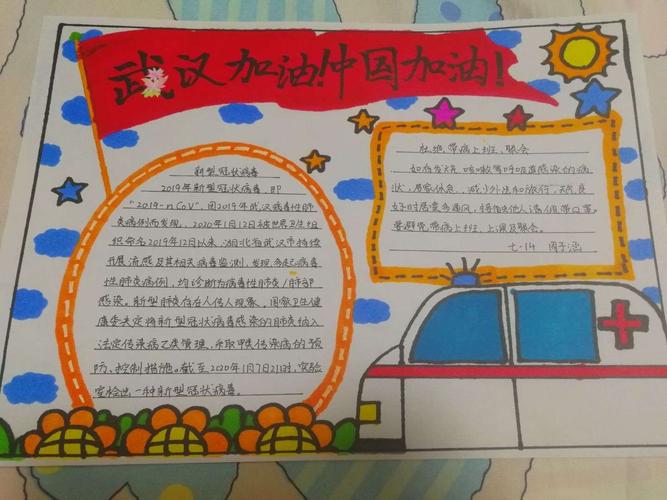 武汉加油!中国加油!
新型冠状病毒
2019年新型冠状病毒,即
"2019-nCoV",因2019年武汉病毒性肺
炎病例而发现,2020年1月12日被世界卫生组
织命名2019年12月以来,湖北省武汉市持续
开展流感及其相关病毒监测,发现多起病毒
性肺炎病例,均诊断为病毒性肺炎/肺部
感染。新型肺炎存在人传人现象。国家卫生健
康委决定将新型冠状病毒感染的肺炎纳入
法定传染病乙类管理,采取甲类传染病的预
防、控制措施。截至2020年1月7日21时,实验
室检出一种新型冠状病毒。
杜绝带病上班、聚会
如有发烧、咳嗽等呼吸道感染的病
状,居家休息,减少外出和旅行,天气良
好时居室多通风,接触他人请佩带口罩。
要避免带病上班、上课及聚会。
七·14 周子涵